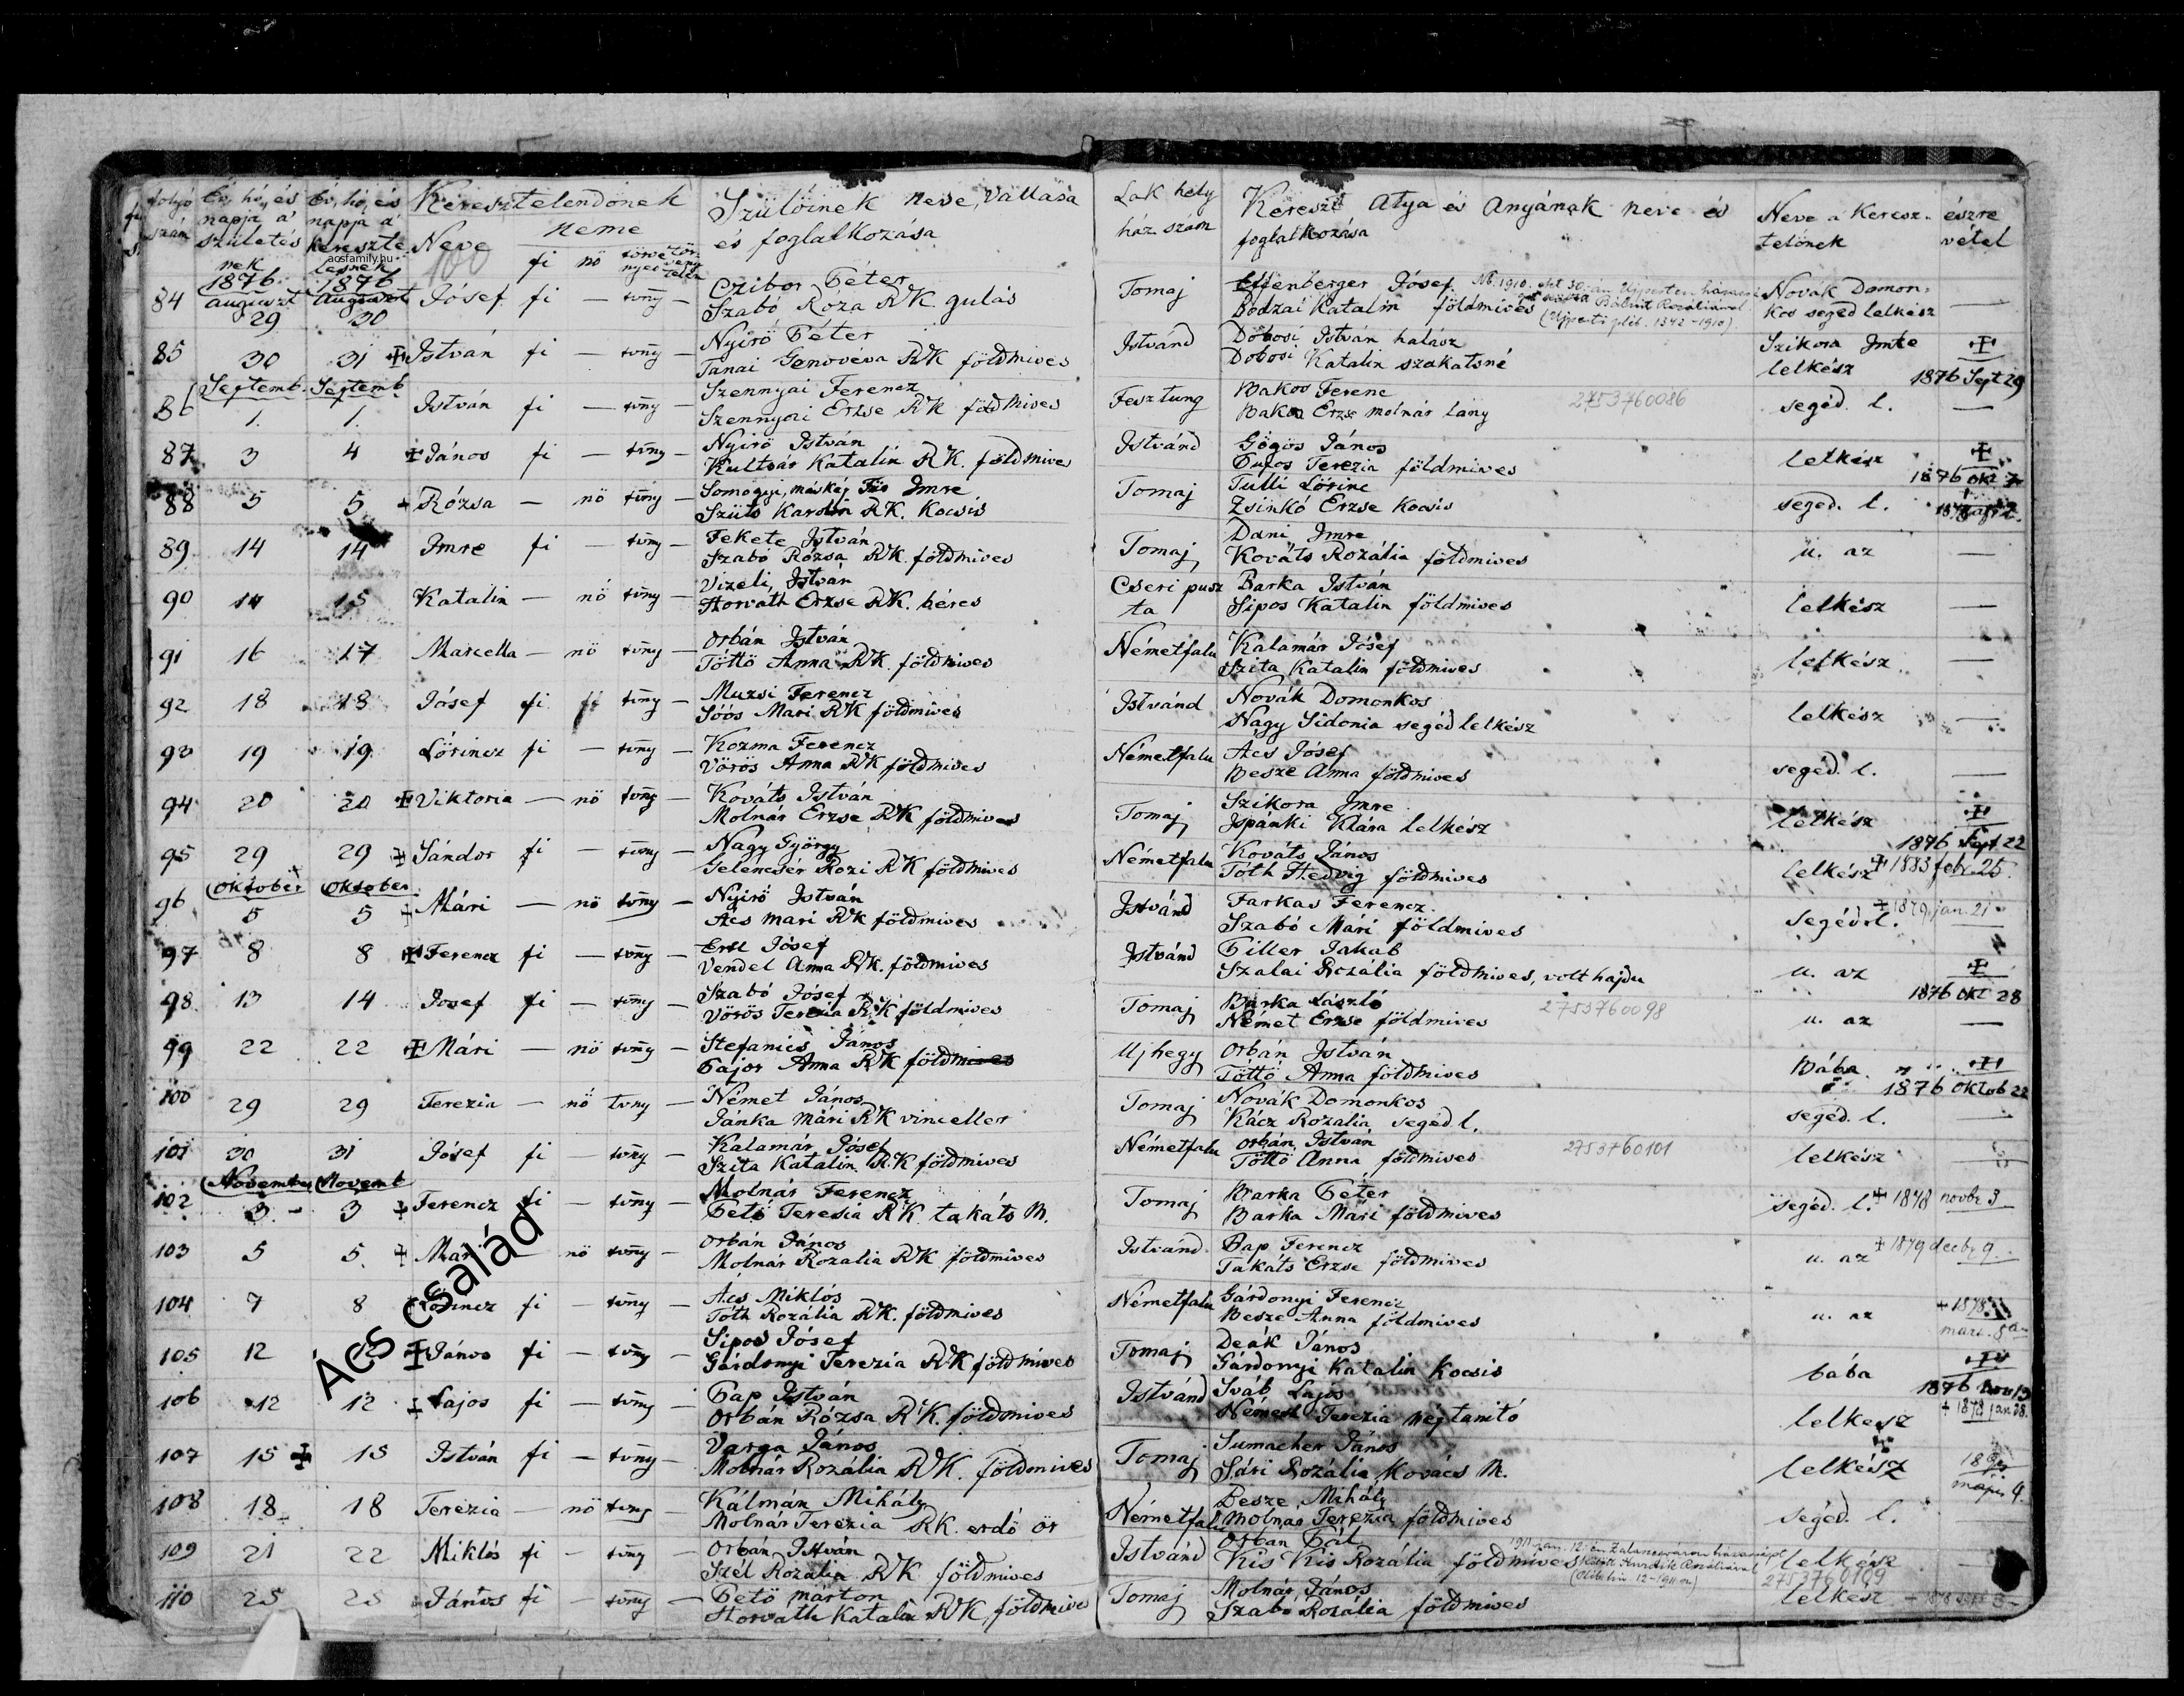 folyó szám
Év, hó, és napja a' születés nek
Év, hó, és napja a' kereszte lesnek
Keresztelendőnek
Neve
neme
fi nő törvényes törvénytelen
Szülőinek neve, vallása
és foglalkozása
Lak hely
ház szám
Kereszt Atya és Anyának neve és
foglalkozása
Neve a Keresz-
telőnek
észre
vétel
acsfamily.hu
100
1876 1876
84 August 29 August 30 József fi — tvny — Czibor Péter
Szabó Róza RK. gulás
Tomaj Effenberger József
Bodzai Katalin földmives
Novák Domon-
kos segéd lelkész —
85 30 31 István fi — tvny — Nyirő Péter
Tanai Genoveva RK földmives
Istvánd Dobosi István halász
Dobosi Katalin szakatsné
Szikora Imre
lelkész 1876 Sept 29
Septemb. Septemb.
86 1. 1. István fi — tvny — Szennyai Ferencz
Szennyai Erzse RK földmives
Fesztung Bakos Ferenc
Bakos Erzse molnár lány
2753760086
segéd. l. —
87 3 4 János fi — tvny — Nyirő István
Kultsár Katalin RK. földmives
Istvánd Gögös János
Pufos Terezia földmives
lelkész 1876 okt 7
88 5 5 Rózsa — nő tvny — Somogyi, máskép Imre
Szüts Karolin RK. Kocsis
Tomaj Tulli Lőrinc
Zsinkó Erzse Kocsis
segéd. l.
89 14 14 Imre fi — tvny — Fekete István
Szabó Rózsa RK. földmives
Tomaj Dani Imre
Kováts Rozália földmives
u. az —
90 14 15 Katalin — nő tvny — Vizeli István
Horváth Erzse RK. béres
Cseri pusz
ta Barka István
Sipos Katalin földmives
lelkész —
91 16 17 Marcella — nő tvny — Orbán István
Töttő Anna RK. földmives
Németfalu Kalamár József
Szita Katalin földmives
lelkész —
92 18 18 József fi tvny — Muzsi Ferencz
Sóós Mari RK földmives
Istvánd Novák Domonkos
Nagy Sidonia segéd lelkész
lelkész —
93 19 19 Lőrincz fi — tvny — Kozma Ferencz
Vörös Anna RK földmives
Németfalu Ács József
Besze Anna földmives
segéd. l. —
94 20 20 Viktoria — nő tvny — Kováts István
Molnár Erzse RK földmives
Tomaj Szikora Imre
Ispánki Klára lelkész
lelkész 1876 Sept 22
95 29 29 Sándor fi — tvny — Nagy György
Gelencsér Rozi RK földmives
Németfalu Kováts János
Tóth Hedvig földmives
lelkész 1883 febr. 25.
Oktober Oktober
96 5 5 Mári — nő tvny — Nyirő István
Ács mari RK földmives
Istvánd Farkas Ferencz
Szabó Mári földmives
segéd l. 1879. jan. 21
97 8 8 Ferencz fi — tvny — Ertl József
Vendel Anna RK. földmives
Istvánd Piller Jakab
Szalai Rozália földmives, volt hajdu
u. az 1876 okt 28
98 13 14 Josef fi — tvny — Szabó József
Vörös Terezia RK földmives
Tomaj Barka László
Német Erzse földmives
2753760098
u. az —
99 22 22 Mári — nő tvny — Stefanics János
Pajor Anna RK földmives
Ujhegy Orbán István
Töttő Anna földmives
Bába 1876 Oktob 22
100 29 29 Terezia — nő tvny — Német János
Jánka Mári RK vinceller
Tomaj Novák Domonkos
Rácz Rozalia segéd l.
segéd. l.
101 30 31 József fi — tvny — Kalamár József
Szita Katalin R.K földmives
Németfalu Orbán István
Töttő Anna földmives
2753760101
lelkész —
November Novemb
102 3. 3 Ferencz fi — tvny — Molnár Ferencz
Pető Teresia RK. takáts M.
Tomaj Barka Péter
Barka Mári földmives
segéd. l. 1878 novbr 3
103 5 5. Mari nő tvny — Orbán János
Molnár Rozalia RK földmives
Istvánd Pap Ferencz
Takáts Erzse földmives
u. az 1879 decbr 9.
104 7 8 Lőrincz fi — tvny — Ács Miklós
Tóth Rozália RK. földmives
Németfalu Gárdonyi Ferencz
Besze Anna földmives
u. az 1878
105 12 12 János fi — tvny — Sipos József
Gárdonyi Terezia RK földmives
Tomaj Deák János
Gárdonyi Katalin Kocsis
bába 1876 Nov 13
106 12 12 Lajos fi — tvny — Pap István
Orbán Rózsa R.K. földmives
Istvánd Sváb Lajos
Német Terezia néptanitó
lelkész 1878 jan 28.
107 15 15 István fi — tvny — Varga János
Molnár Rozália RK. földmives
Tomaj Sumacher János
Sári Rozália Kovács M.
lelkész
108 18 18 Terezia — nő tvny — Kálmán Mihály
Molnár Terezia RK. erdő ör
Németfalu Besze Mihály
Molnár Terezia földmives
segéd. l.
109 21 22 Miklós fi — tvny — Orbán István
Szél Rozália RK földmives
Istvánd Orbán Pál
Kis Kis Rozália földmives
lelkész
2753760109
110 25 25 János fi — tvny — Pető márton
Horváth Katalin RK földmives
Tomaj Molnár János
Szabó Rozália földmives
lelkész
Ács család